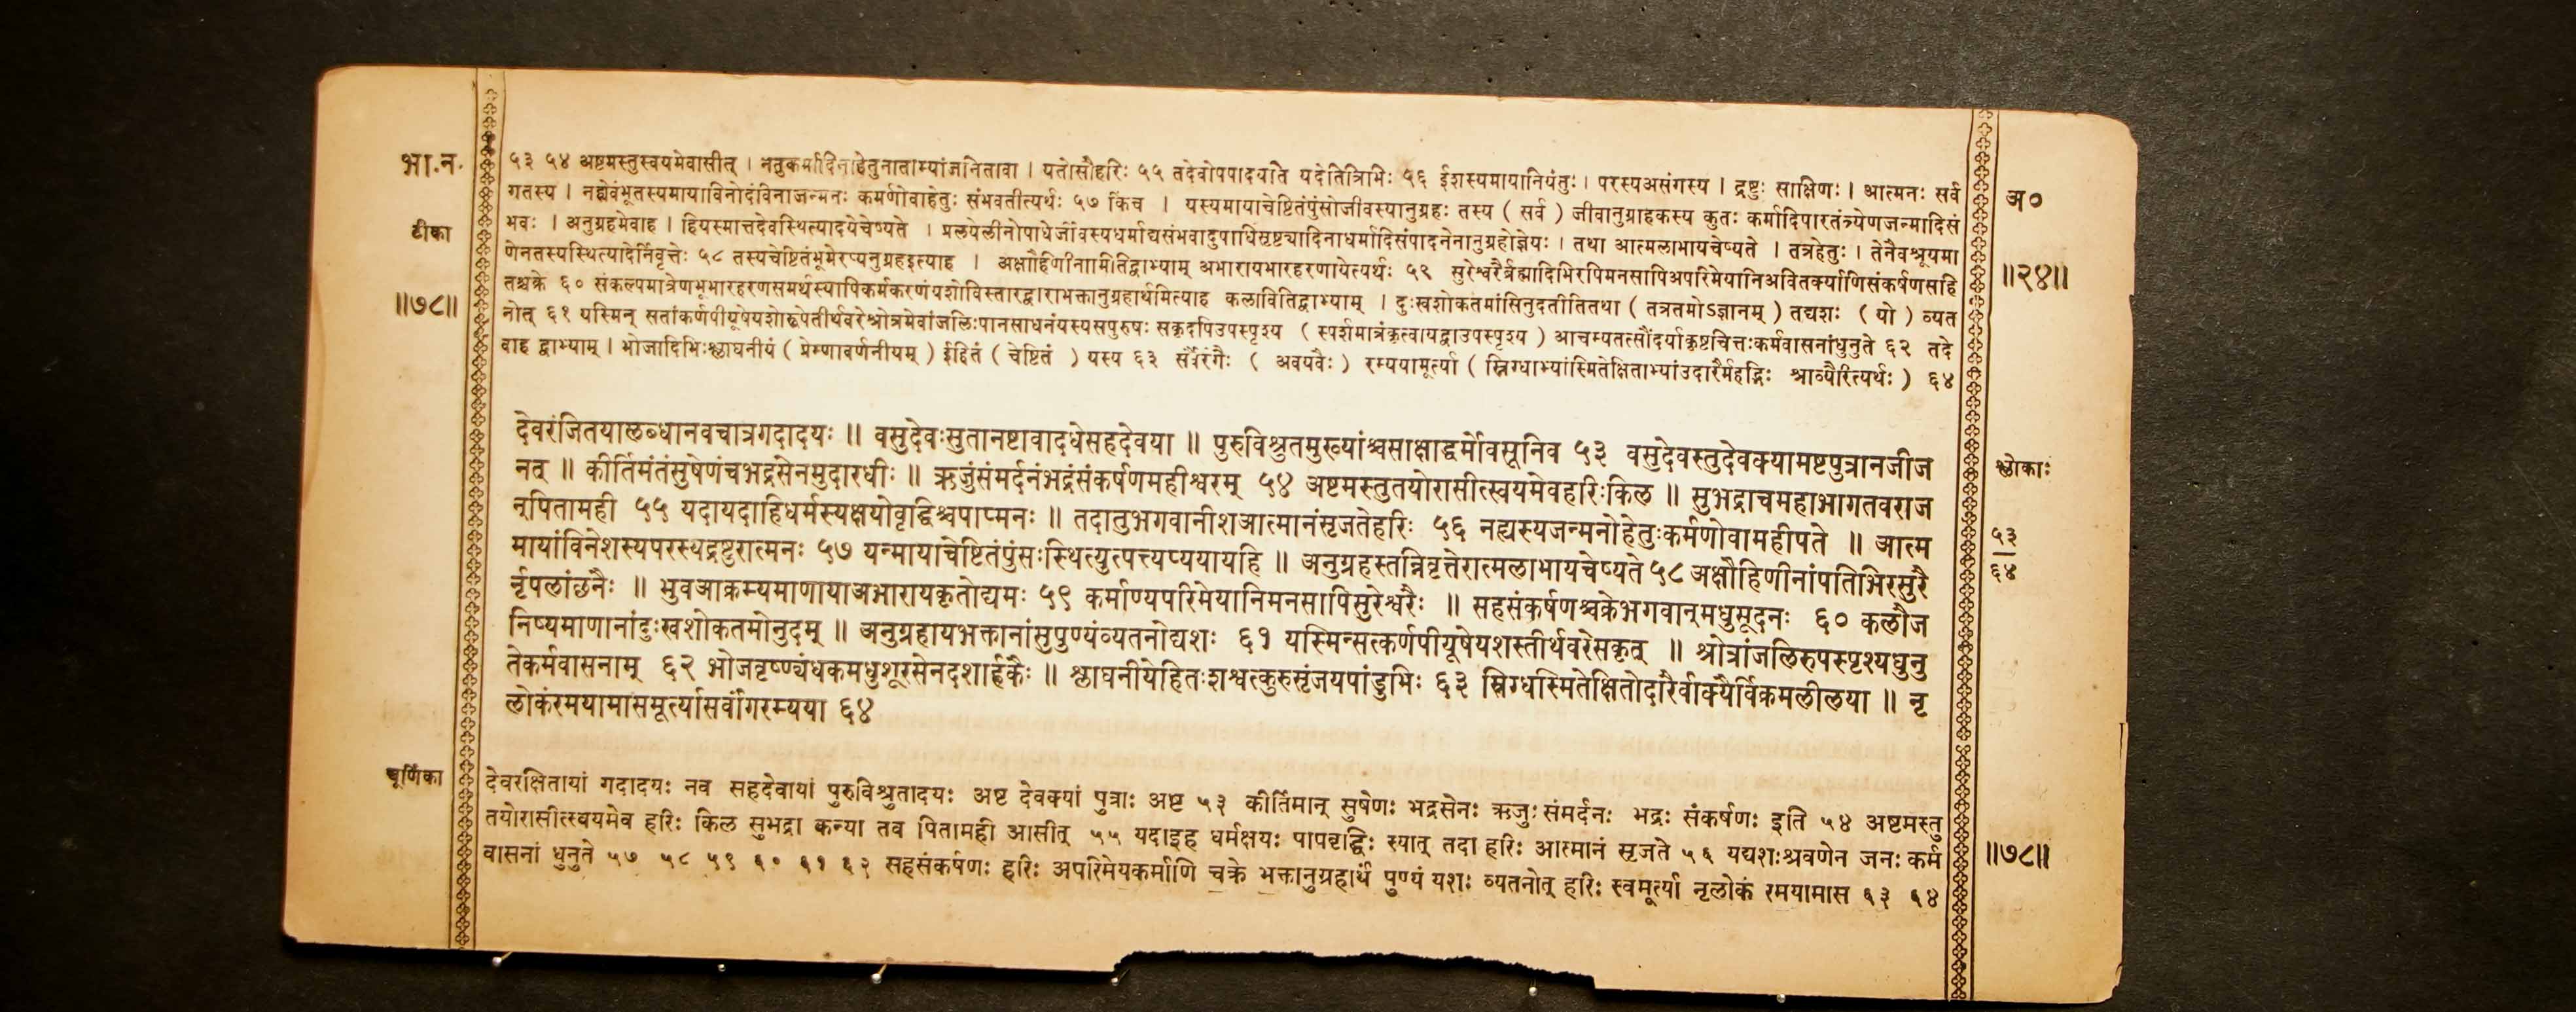 भा.न.
५३ ५४ अष्टमस्तुस्वयमेवासीत् । नतुकर्मादिनाहेतुनाताभ्यांजनितावा । यतोसौहरिः ५५ तदेवोपपादयति यदेतित्रिभिः ५६ ईशस्यमायानियंतुः । परस्यअसंगस्य । द्रष्टुः साक्षिणः । आत्मनः सर्व
गतस्य । नह्येवंभूतस्यमायाविनोदंविनाजन्मनः कमर्णोवाहेतुः संभवतीत्यर्थः ५७ किंच । यस्यमायाचेष्टितंपुंसोजीवस्यानुग्रहः तस्य ( सर्व ) जीवानुग्राहकस्य कुतः कर्मादिपारतंत्र्येणजन्मादिसं
भवः । अनुग्रहमेवाह । हियस्मात्तदेवस्थित्यादयेचेष्यते । प्रलयेलीनोपाधेर्जीवस्यधर्माद्यसंभवादुपाधिसृष्ट्यादिनाधर्मादिसंपादनेनानुग्रहोज्ञेयः । तथा आत्मलाभायचेष्यते । तत्रहेतुः । तेनैवश्रूयमा
णेनतस्यस्थित्यादेर्निवृत्तेः ५८ तस्यचेष्टितंभूमेरप्यनुग्रहइत्याह । अक्षौहिणीनामितिद्वाभ्याम् अभारायभारहरणायेत्यर्थः ५९ सुरेश्वरैर्ब्रह्मादिभिरपिमनसापिअपरिमेयानिअवितर्क्याणिसंकर्षणसहि
तश्चक्रे ६० संकल्पमात्रेणभूभारहरणसमर्थस्यापिकर्मकरणंयशोविस्तारद्वाराभक्तानुग्रहार्थमित्याह कलावितिद्वाभ्याम् । दुःखशोकतमांसिनुदतीतितथा ( तत्रतमोऽज्ञानम् ) तद्यशः ( यो ) व्यत
नोत् ६१ यस्मिन् सतांकर्णपीयूषेयशोरूपेतीर्थवरेश्रोत्रमेवांजलिःपानसाधनंयस्यसपुरुषः सकृदपिउपस्पृश्य ( स्पर्शमात्रंकृत्वायद्वाउपस्पृश्य ) आचम्यतत्सौंदर्याकृष्टचित्तःकर्मवासनांधुनुते ६२ तदे
वाह द्वाभ्याम् । भोजादिभिःश्लाघनीयं ( प्रेम्णावर्णनीयम् ) ईहितं ( चेष्टितं ) यस्य ६३ सर्वैरंगैः ( अवयवैः ) रम्ययामूर्त्या ( स्निग्धाभ्यांस्मितेक्षिताभ्यांउदारैर्महद्भिः श्राव्यैरित्यर्थः ) ६४
टीका
॥७८॥
अ०
॥२४॥
देवरंजितयालब्धानवचात्रगदादयः ॥ वसुदेवःसुतानष्टावादधेसहदेवया ॥ पुरुविश्रुतमुख्यांश्चसाक्षाद्धर्मोवसूनिव ५३ वसुदेवस्तुदेवक्यामष्टपुत्रानजीज
नत् ॥ कीर्तिमंतंसुषेणंचभद्रसेनमुदारधीः ॥ ऋजुंसंमर्दनंभद्रंसंकर्षणमहीश्वरम् ५४ अष्टमस्तुतयोरासीत्स्वयमेवहरिःकिल ॥ सुभद्राचमहाभागातवराज
न्पितामही ५५ यदायदाहिधर्मस्यक्षयोवृद्धिश्चपाप्मनः ॥ तदातुभगवानीशआत्मानंसृजतेहरिः ५६ नह्यस्यजन्मनोहेतुःकर्मणोवामहीपते ॥ आत्म
मायांविनेशस्यपरस्यद्रष्टुरात्मनः ५७ यन्मायाचेष्टितंपुंसःस्थित्युत्पत्त्यप्ययायहि ॥ अनुग्रहस्तन्निवृत्तेरात्मलाभायचेष्यते ५८ अक्षौहिणीनांपतिभिरसुरै
र्नृपलांछनैः ॥ भुवआक्रम्यमाणायाअभारायकृतोद्यमः ५९ कर्माण्यपरिमेयानिमनसापिसुरेश्वरैः ॥ सहसंकर्षणश्चक्रेभगवान्मधुसूदनः ६० कलौज
निष्यमाणानांदुःखशोकतमोनुदम् ॥ अनुग्रहायभक्तानांसुपुण्यंव्यतनोद्यशः ६१ यस्मिन्सत्कर्णपीयूषेयशस्तीर्थवरेसकृत् ॥ श्रोत्रांजलिरुपस्पृश्यधुनु
तेकर्मवासनाम् ६२ भोजवृष्ण्यंधकमधुशूरसेनदशार्हकैः ॥ श्लाघनीयेहितःशश्वत्कुरुसृंजयपांडुभिः ६३ स्निग्धस्मितेक्षितोदारैर्वाक्यैर्विक्रमलीलया ॥ नृ
लोकंरमयामासमूर्त्यासर्वांगरम्यया ६४
श्लोकाः
५३
६४
चूर्णिका
देवरक्षितायां गदादयः नव सहदेवायां पुरुविश्रुतादयः अष्ट देवक्यां पुत्राः अष्ट ५३ कीर्तिमान् सुषेणः भद्रसेनः ऋजुः संमर्दनः भद्रः संकर्षणः इति ५४ अष्टमस्तु
तयोरासीत्स्वयमेव हरिः किल सुभद्रा कन्या तव पितामही आसीत् ५५ यदाइह धर्मक्षयः पापवृद्धिः स्यात् तदा हरिः आत्मानं सृजते ५६ यद्यशःश्रवणेन जनः कर्म
वासनां धुनुते ५७ ५८ ५९ ६० ६१ ६२ सहसंकर्षणः हरिः अपरिमेयकर्माणि चक्रे भक्तानुग्रहार्थं पुण्यं यशः व्यतनोत् हरिः स्वमूर्त्या नृलोकं रमयामास ६३ ६४
॥७८॥